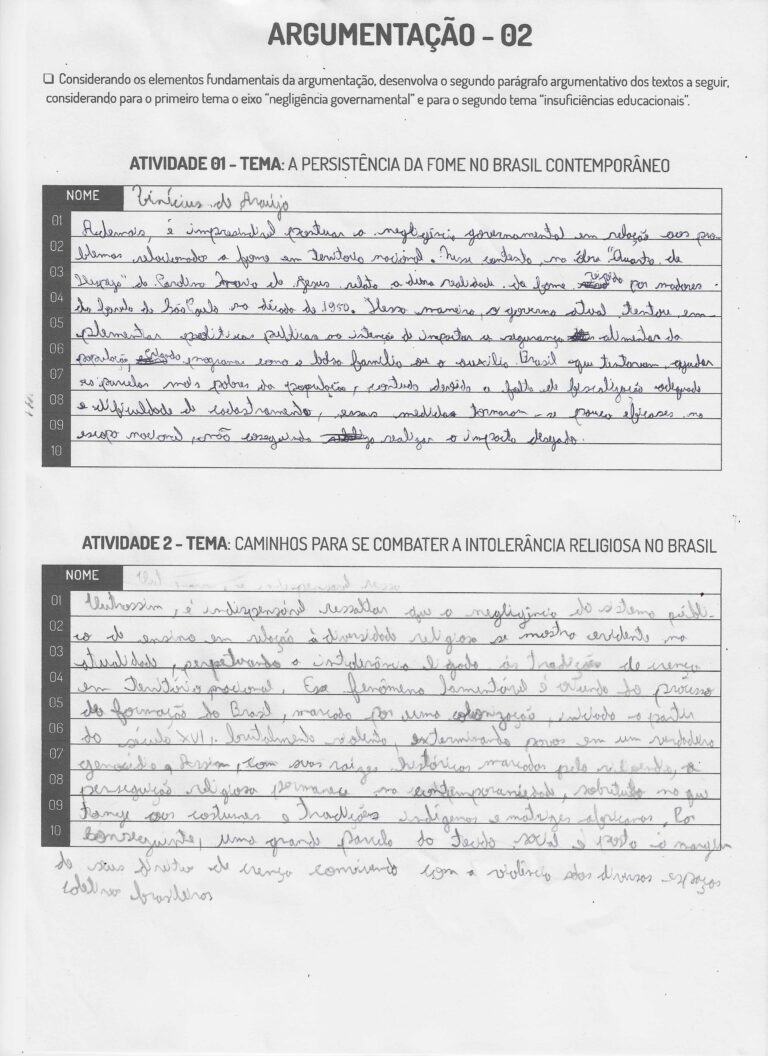 ARGUMENTAÇÃO - 02
❏ Considerando os elementos fundamentais da argumentação, desenvolva o segundo parágrafo argumentativo dos textos a seguir,
considerando para o primeiro tema o eixo "negligência governamental" e para o segundo tema "insuficiências educacionais".
ATIVIDADE 01 - TEMA: A PERSISTÊNCIA DA FOME NO BRASIL CONTEMPORÂNEO
NOME Vinícius de Araújo
01 Ademais, é negligência governamental em relação aos pro-
02 blemas relacionados a fome em território nacional. Nesse contexto, na obra "Quarto de
03 Despejo" de Carolina Maria de Jesus relata a realidade da fome por moradores
04 da favela de São Paulo na década de 1950. Dessa maneira, o governo atual, tentou em-
05 plementar politicas publicas na intenção de impactar a segurança alimentar da
06 população, programas como o bolsa família ou o auxilio Brasil que tentavam ajudar
07 as parcelas mais pobres da população, contudo devido a falta de fiscalização adequada
08 e dificuldade de cadastramento, essas medidas tornaram-se pouco eficases no
09 escopo nacional, não coseguindo realizar o impacto desejado.
10
ATIVIDADE 2 - TEMA: CAMINHOS PARA SE COMBATER A INTOLERÂNCIA RELIGIOSA NO BRASIL
NOME
01 Outrossim, é indispensável ressaltar que a negligência do sistema públi-
02 co de ensino em relação à diversidade religiosa se mostra evidente na
03 atualidade, perpetuando a intolerância ligada às tradição de crença
04 em território nacional. Esse fenômeno lamentável é oriundo do processo
05 de formação do Brasil, marcado por uma colonização, iniciado a partir
06 do século XVI, brutalmente violenta, exterminando povos em um verdadero
07 genocídio. Assim, com suas raízes históricas marcadas pela violencia, a
08 perseguição religiosa permanece na contemporaniedade, sobretudo no que
09 tange aos costumes e tradições indígenas e matrizes africanas. Por
10 conseguinte, uma grande parcela do tecido social é posta à margem
de seus direitos de crença convivendo com a violência dos diversos espaços
brasileiros